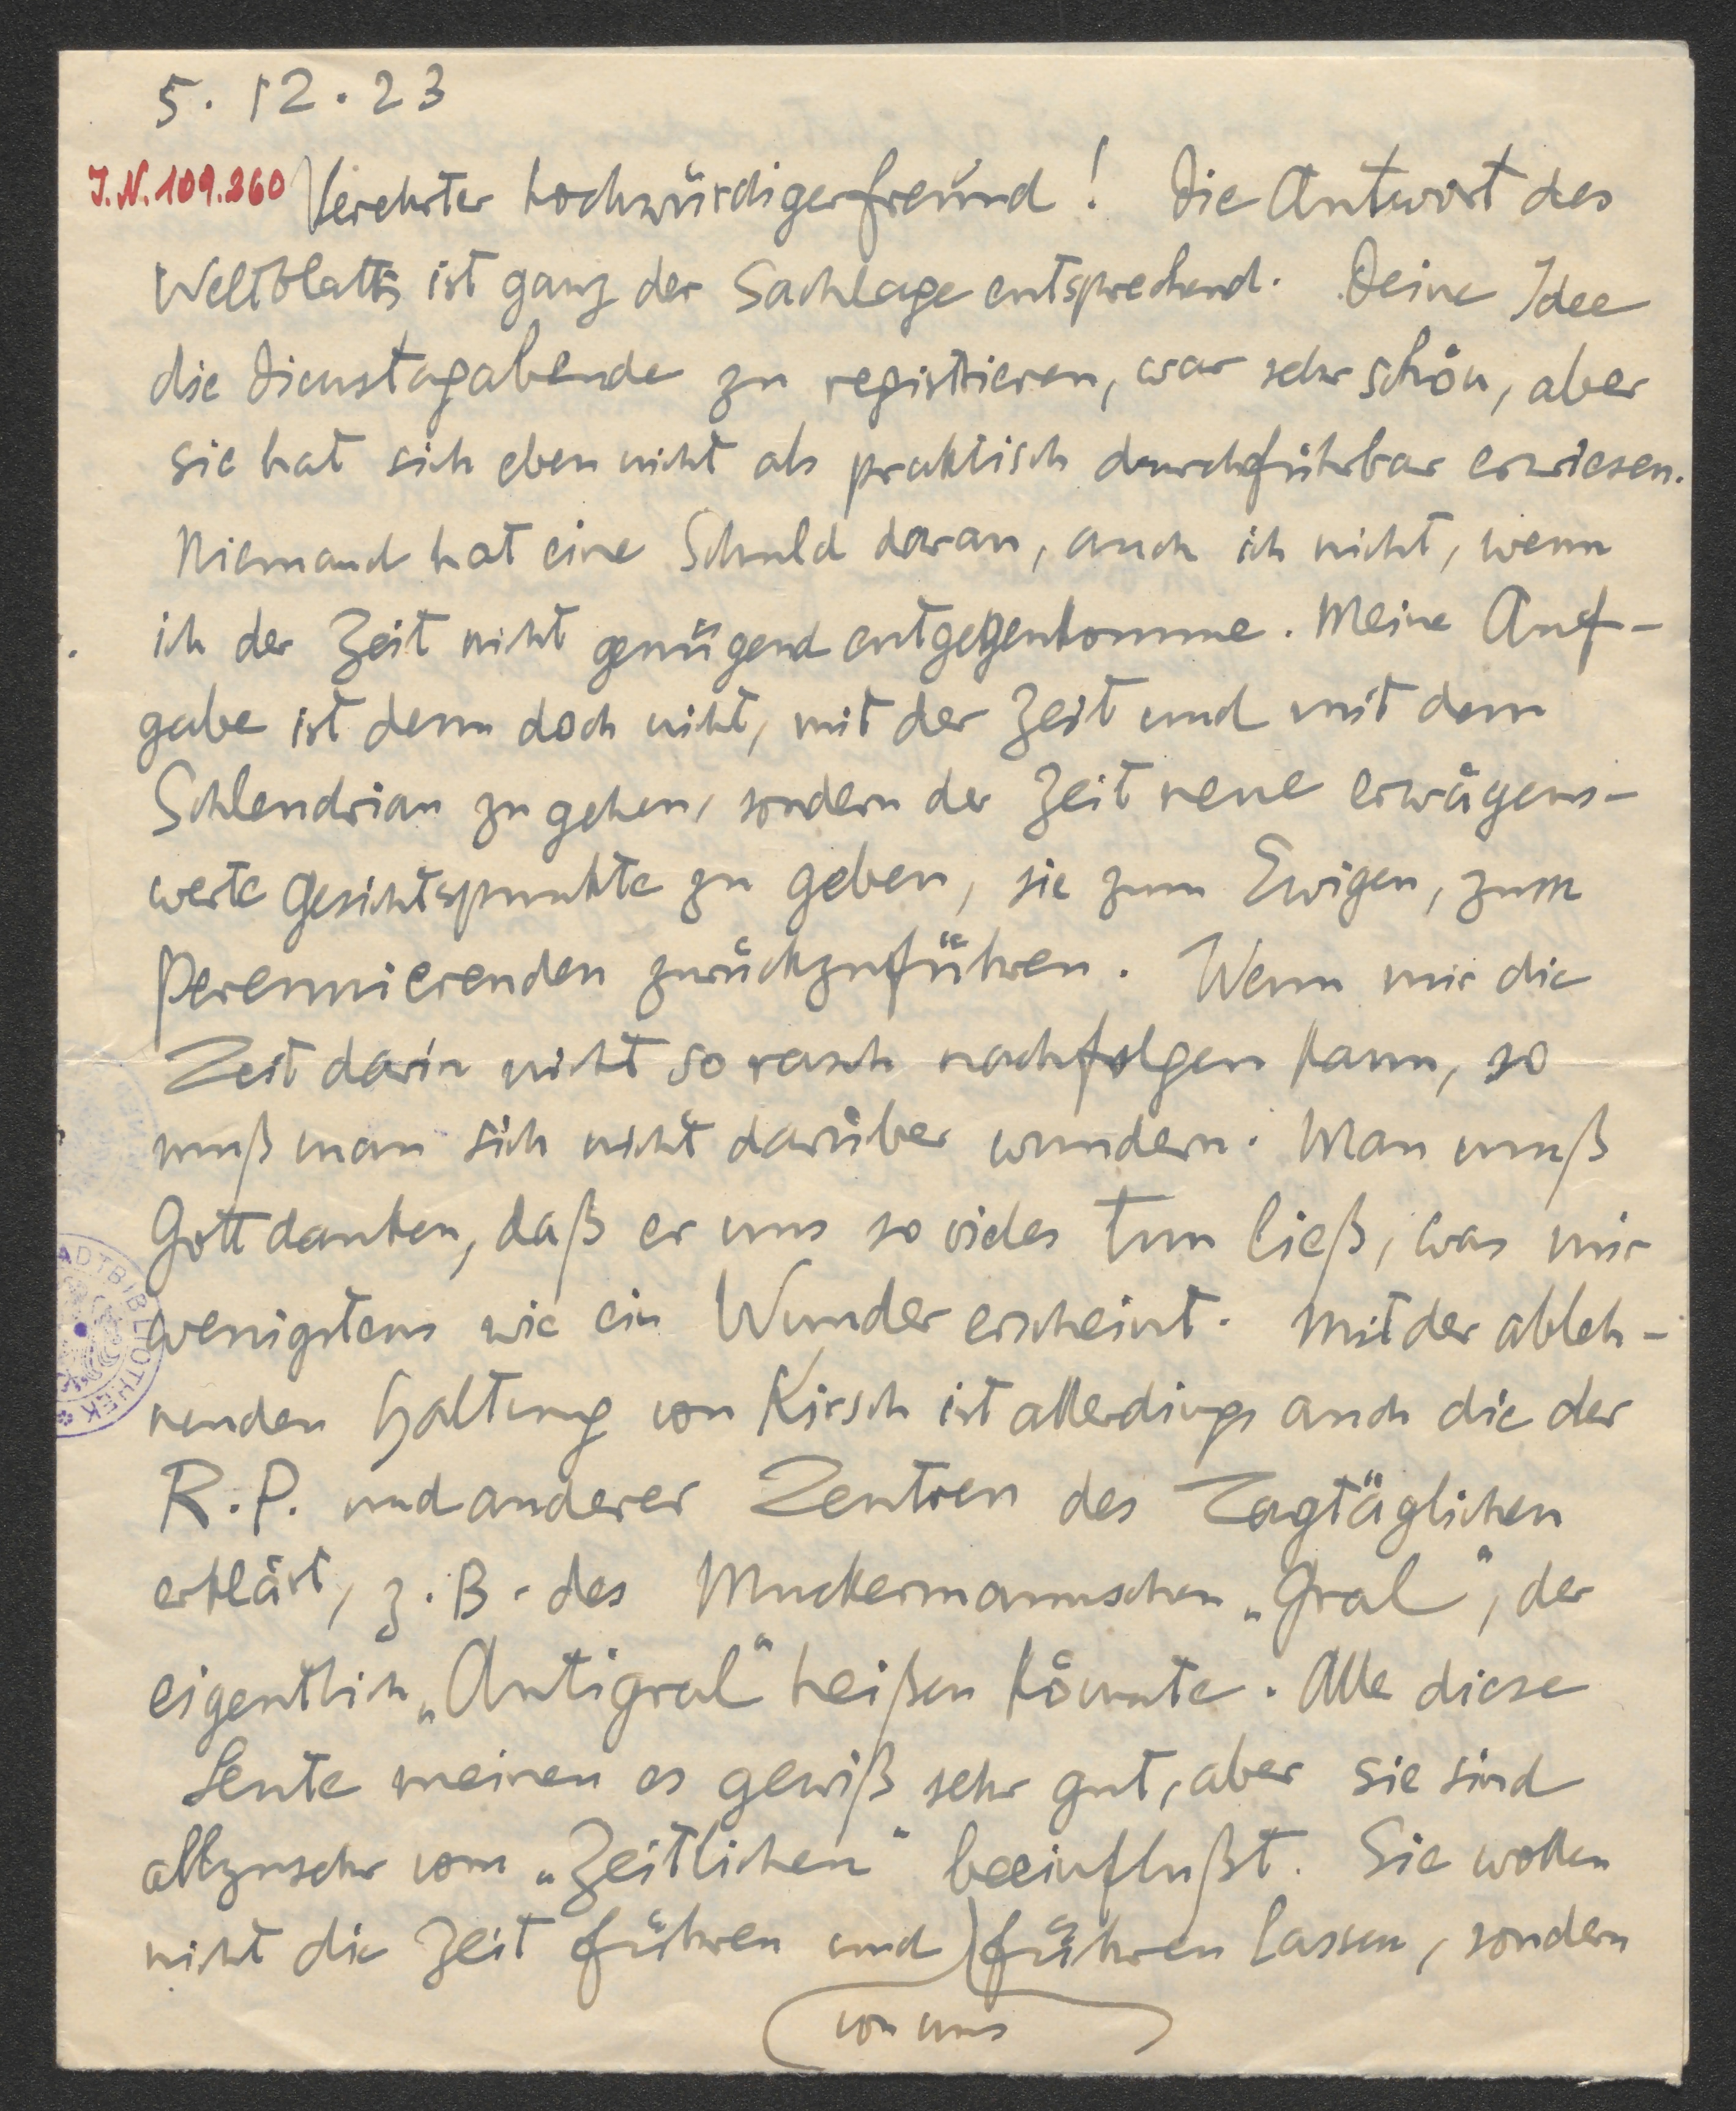 5. 12. 23
J.N. 109.260 Verehrter hochwürdiger freund! Die Antwort des
Weltblatts ist ganz der Sachlage entsprechend. Deine Idee
die Dienstagabende zu registrieren, war sehr schön, aber
sie hat sich eben nicht als praktisch durchführbar erwiesen.
Niemand hat eine Schuld daran, auch ich nicht, wenn
ich der Zeit nicht genügend entgegenkomme. Meine Auf-
gabe ist denn doch nicht, mit der Zeit und mit dem
Schlendrian zu gehen, sondern der Zeit neue erwägens-
werte Gesichtspunkte zu geben, sie zum Ewigen, zum
Perennierenden zurückzuführen. Wenn mir die
Zeit darin nicht so rasch nachfolgen kann, so
muß man sich nicht darüber wundern. Man muß
Gott danken, daß er uns so vieles tun ließ, was mir
wenigstens wie ein Wunder erscheint. Mit der ableh-
nenden Haltung von Kirsch ist allerdings auch die der
R.P. und anderer Zentren des Tagtäglichen
erklärt, z.B. des Muckermannschen „Gral", der
eigentlich „Antigral" heißen könnte. Alle diese
Leute meinen es gewiß sehr gut, aber sie sind
allzusehr vom „Zeitlichen" beeinflußt. Sie wollen
nicht die Zeit führen und führen lassen, sondern
von uns
ADTBIBLIOTHEK